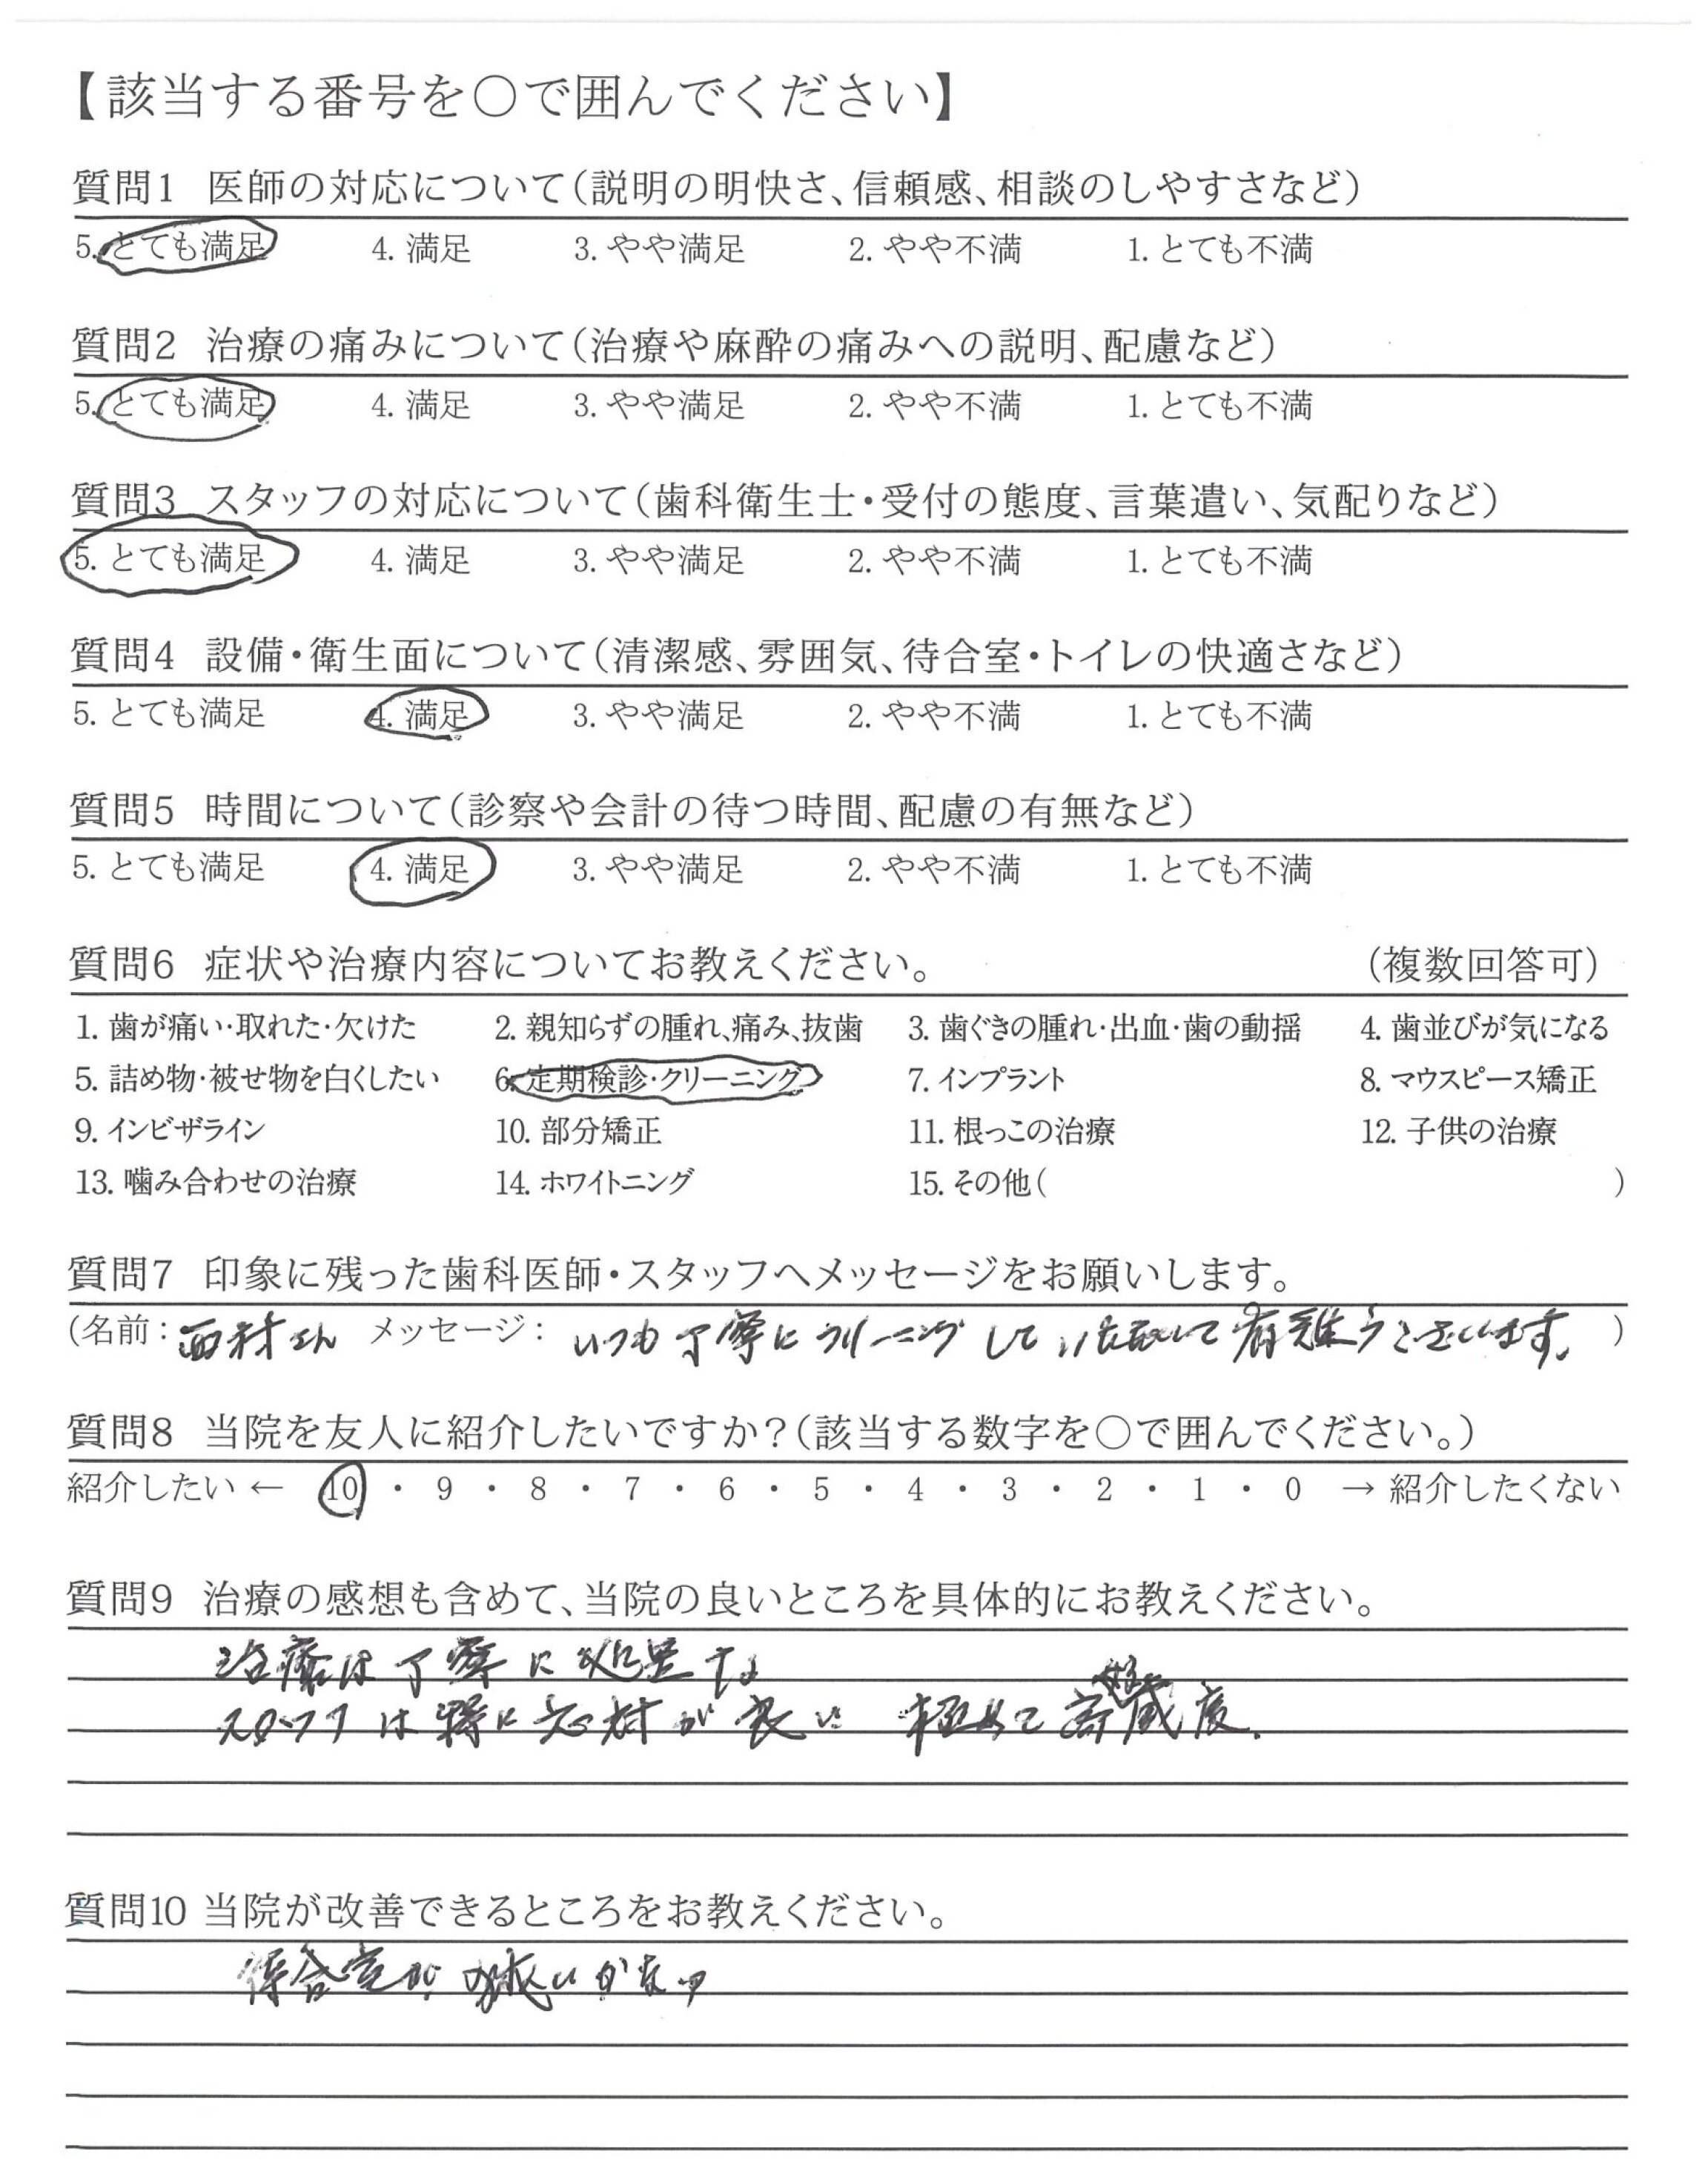 【該当する番号を○で囲んでください】
質問1 医師の対応について(説明の明快さ、信頼感、相談のしやすさなど)
5. とても満足 4. 満足 3. やや満足 2. やや不満 1. とても不満
質問2 治療の痛みについて(治療や麻酔の痛みへの説明、配慮など)
5. とても満足 4. 満足 3. やや満足 2. やや不満 1. とても不満
質問3 スタッフの対応について(歯科衛生士・受付の態度、言葉遣い、気配りなど)
5. とても満足 4. 満足 3. やや満足 2. やや不満 1. とても不満
質問4 設備・衛生面について(清潔感、雰囲気、待合室・トイレの快適さなど)
5. とても満足 4. 満足 3. やや満足 2. やや不満 1. とても不満
質問5 時間について(診察や会計の待つ時間、配慮の有無など)
5. とても満足 4. 満足 3. やや満足 2. やや不満 1. とても不満
質問6 症状や治療内容についてお教えください。 (複数回答可)
1. 歯が痛い・取れた・欠けた 2. 親知らずの腫れ、痛み、抜歯 3. 歯ぐきの腫れ・出血・歯の動揺 4. 歯並びが気になる
5. 詰め物・被せ物を白くしたい 6. 定期検診・クリーニング 7. インプラント 8. マウスピース矯正
9. インビザライン 10. 部分矯正 11. 根っこの治療 12. 子供の治療
13. 噛み合わせの治療 14. ホワイトニング 15. その他( )
質問7 印象に残った歯科医師・スタッフへメッセージをお願いします。
(名前: 西村さん メッセージ: いつも丁寧にクリーニングしていただいて有難うございます。 )
質問8 当院を友人に紹介したいですか?(該当する数字を○で囲んでください。)
紹介したい ← 10 ・ 9 ・ 8 ・ 7 ・ 6 ・ 5 ・ 4 ・ 3 ・ 2 ・ 1 ・ 0 → 紹介したくない
質問9 治療の感想も含めて、当院の良いところを具体的にお教えください。
治療は丁寧に処置
スタッフは特に応対が良い 極めて高 感度.
質問10 当院が改善できるところをお教えください。
待合室が